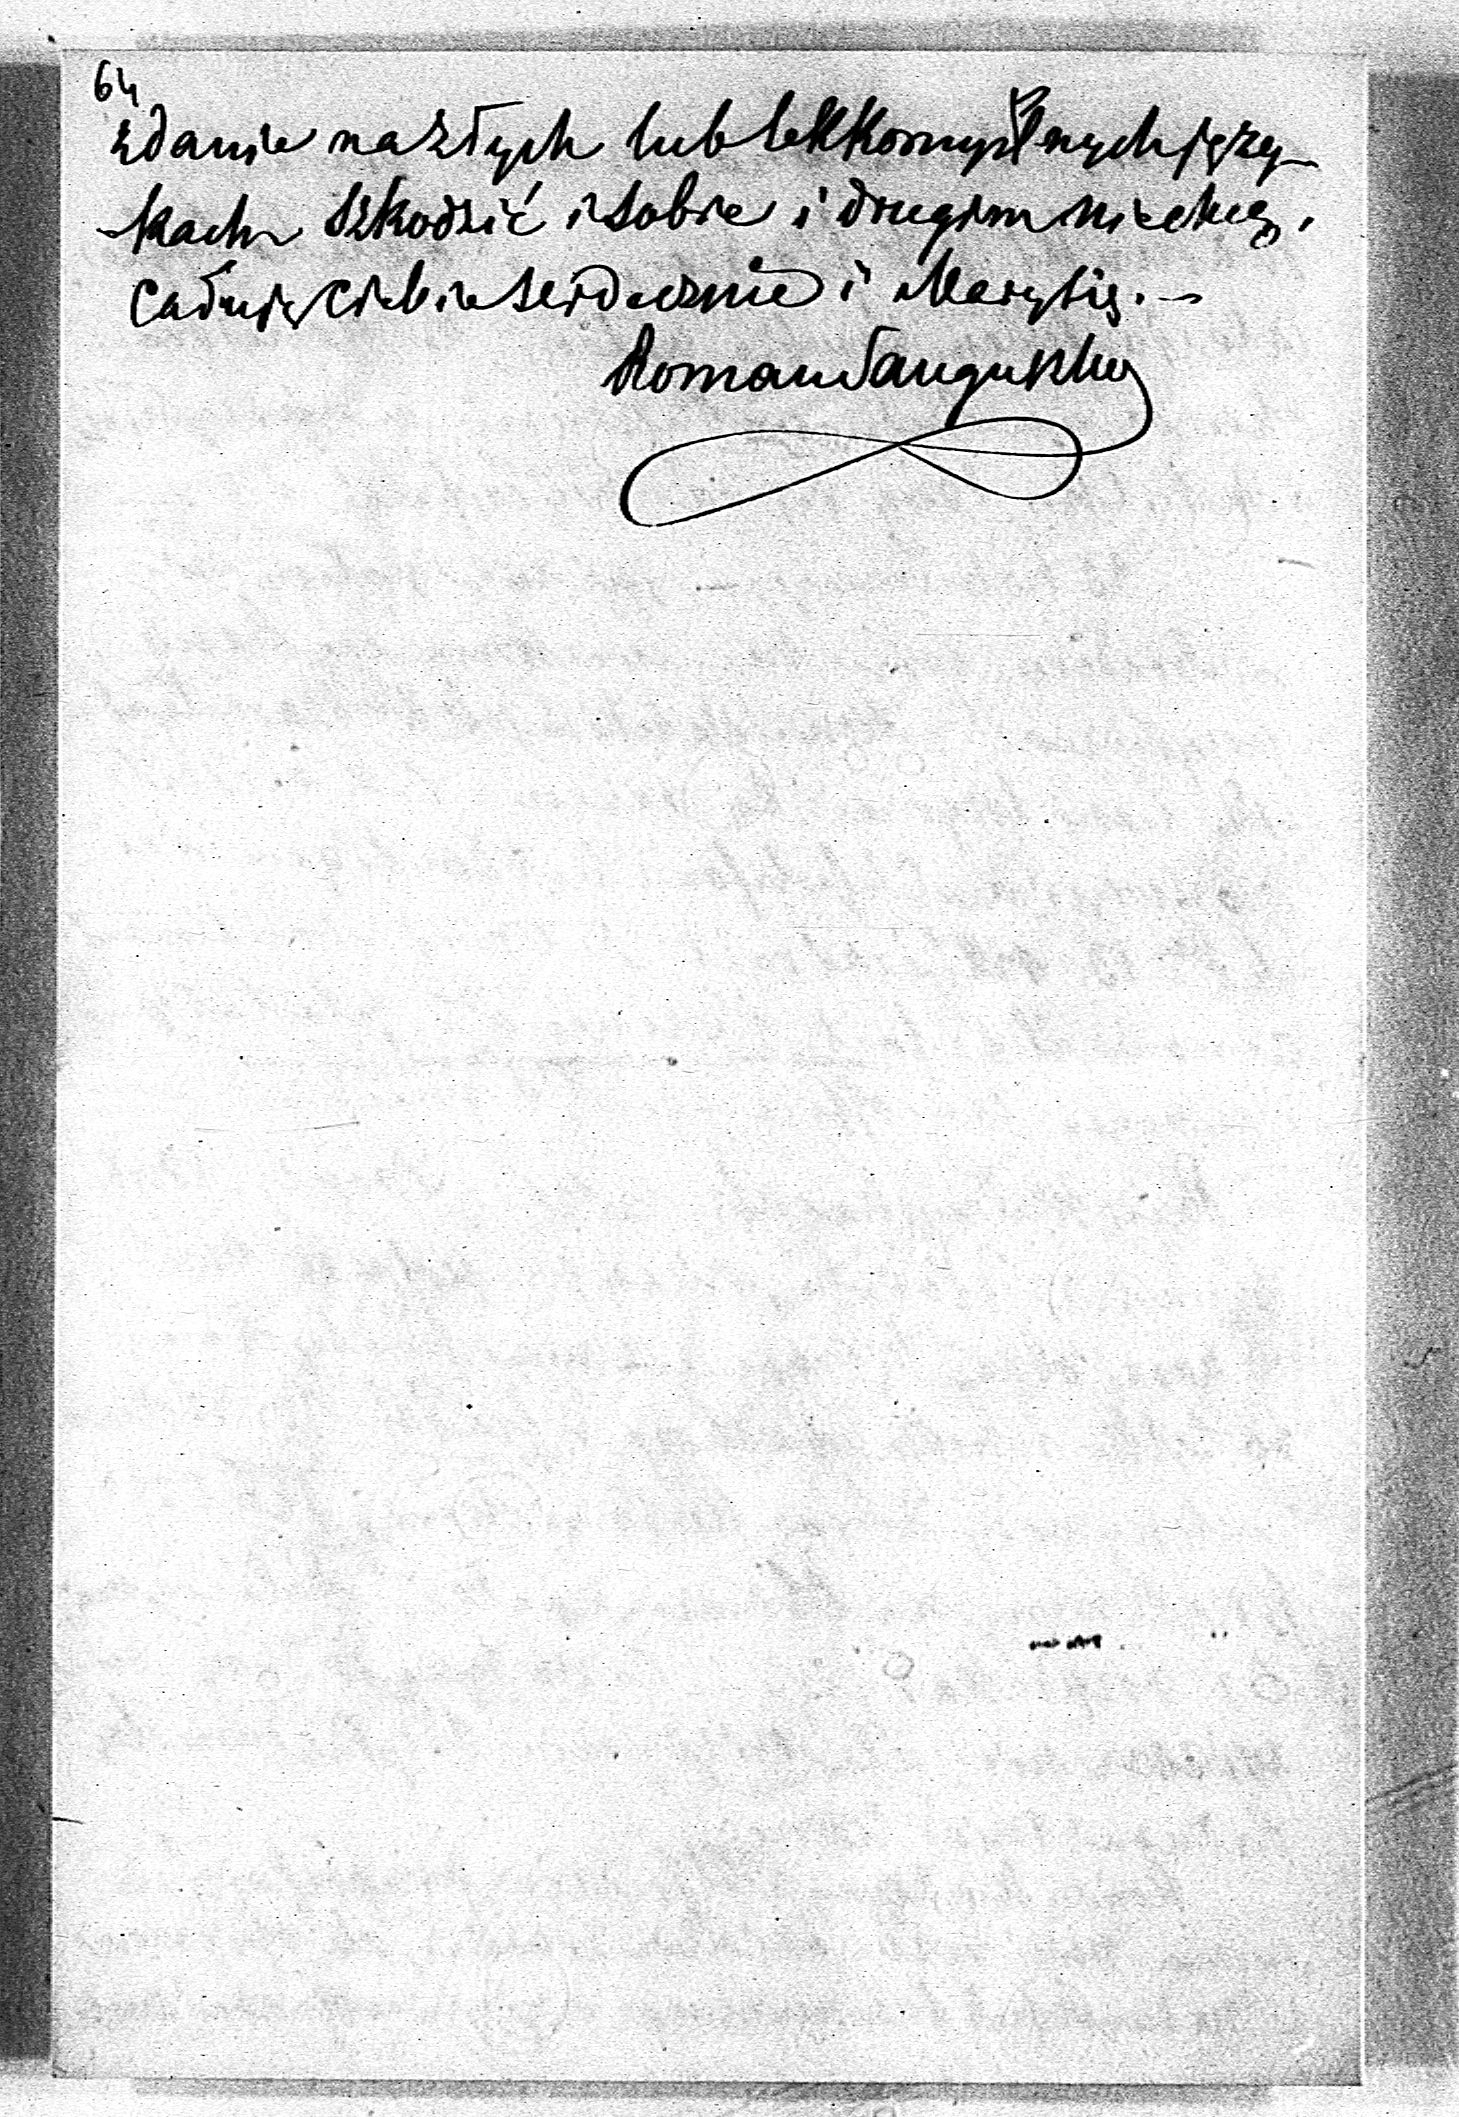 64
zdanie na złych lub lekkomyślnych języ-
-kach szkodzić i sobie i drugim nie chcę.
Całuję ciebie serdecznie i Marysię. —
Roman Sanguszko